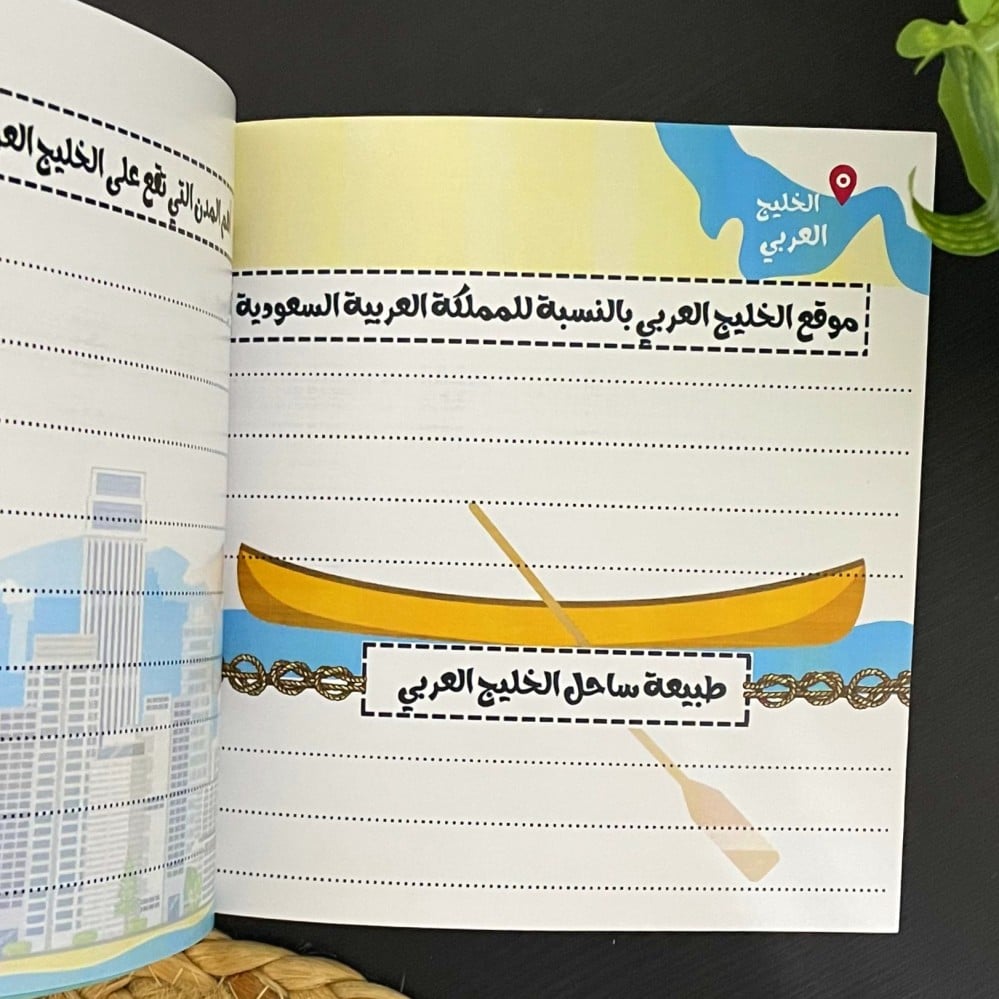 الخليج
العربي
موقع الخليج العربي بالنسبة للمملكة العربية السعودية
طبيعة ساحل الخليج العربي
أهم المدن التي تقع على الخليج